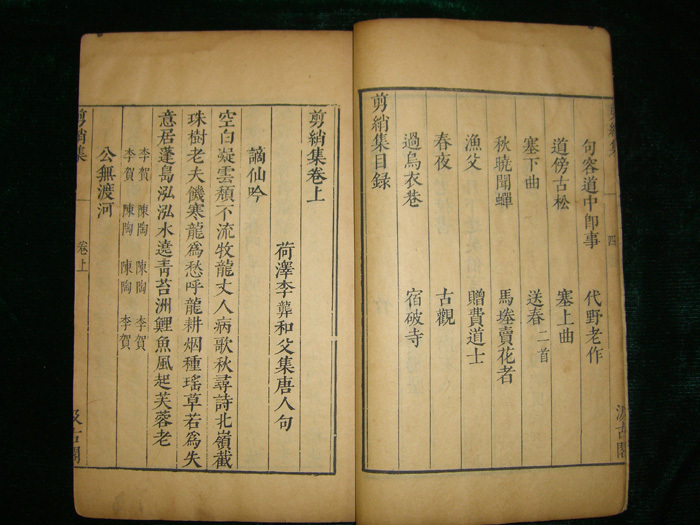 剪綃集
四
汲古閣
句容道中卽事　代野老作
道傍古松　塞上曲
塞下曲　送春二首
秋曉聞蟬　馬塍賣花者
漁父　贈費道士
春夜　古觀
過烏衣巷　宿破寺
剪綃集目録
剪綃集卷上
荷澤李龏和父集唐人句
謫仙吟
空白凝雲頹不流牧龍丈人病歌秋尋詩北嶺截
珠樹老夫饑寒龍爲愁呼龍耕烟種瑤草若爲失
意居蓬島泓泓水遶靑苔洲鯉魚風起芙蓉老
李賀　陳陶　陳陶　李賀
李賀　陳陶　陳陶　李賀
公無渡河
剪綃集
卷上
汲古閣